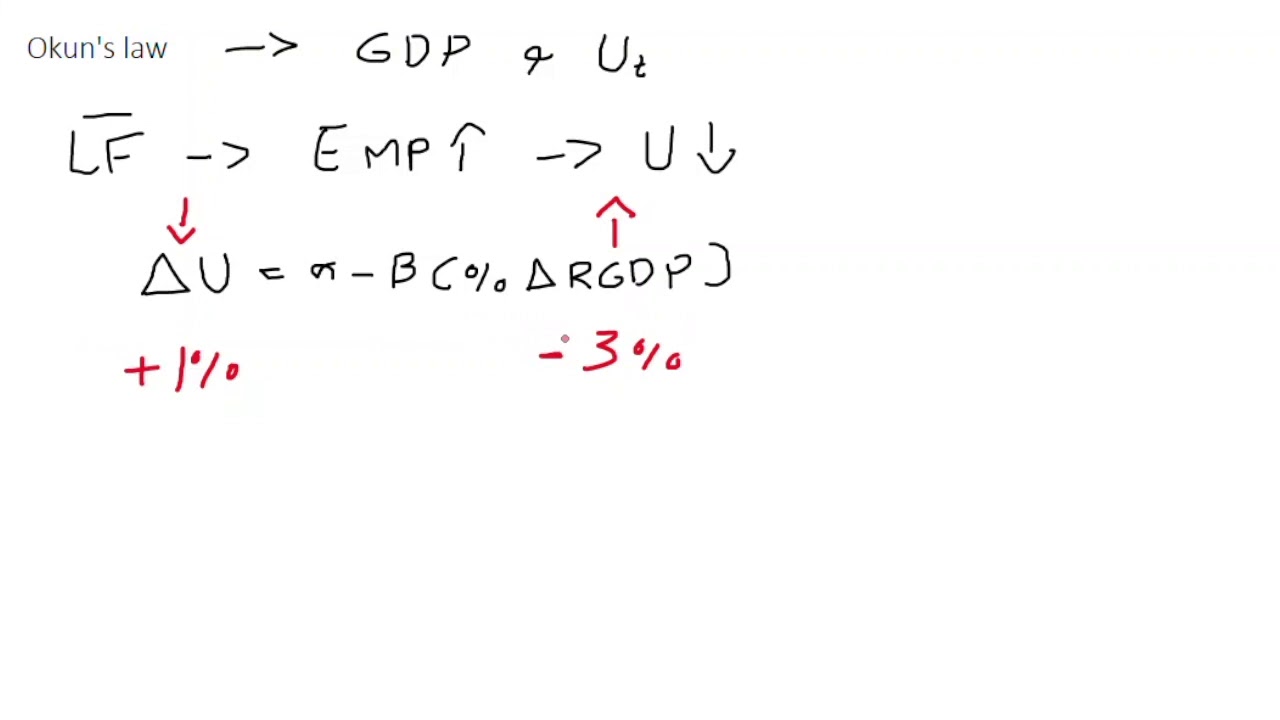 Okun's law -> GDP & Ut
L̅F̅ -> EMP↑ -> U↓
↓ ↑
ΔU = α - B(%ΔRGDP)
+1% -3%